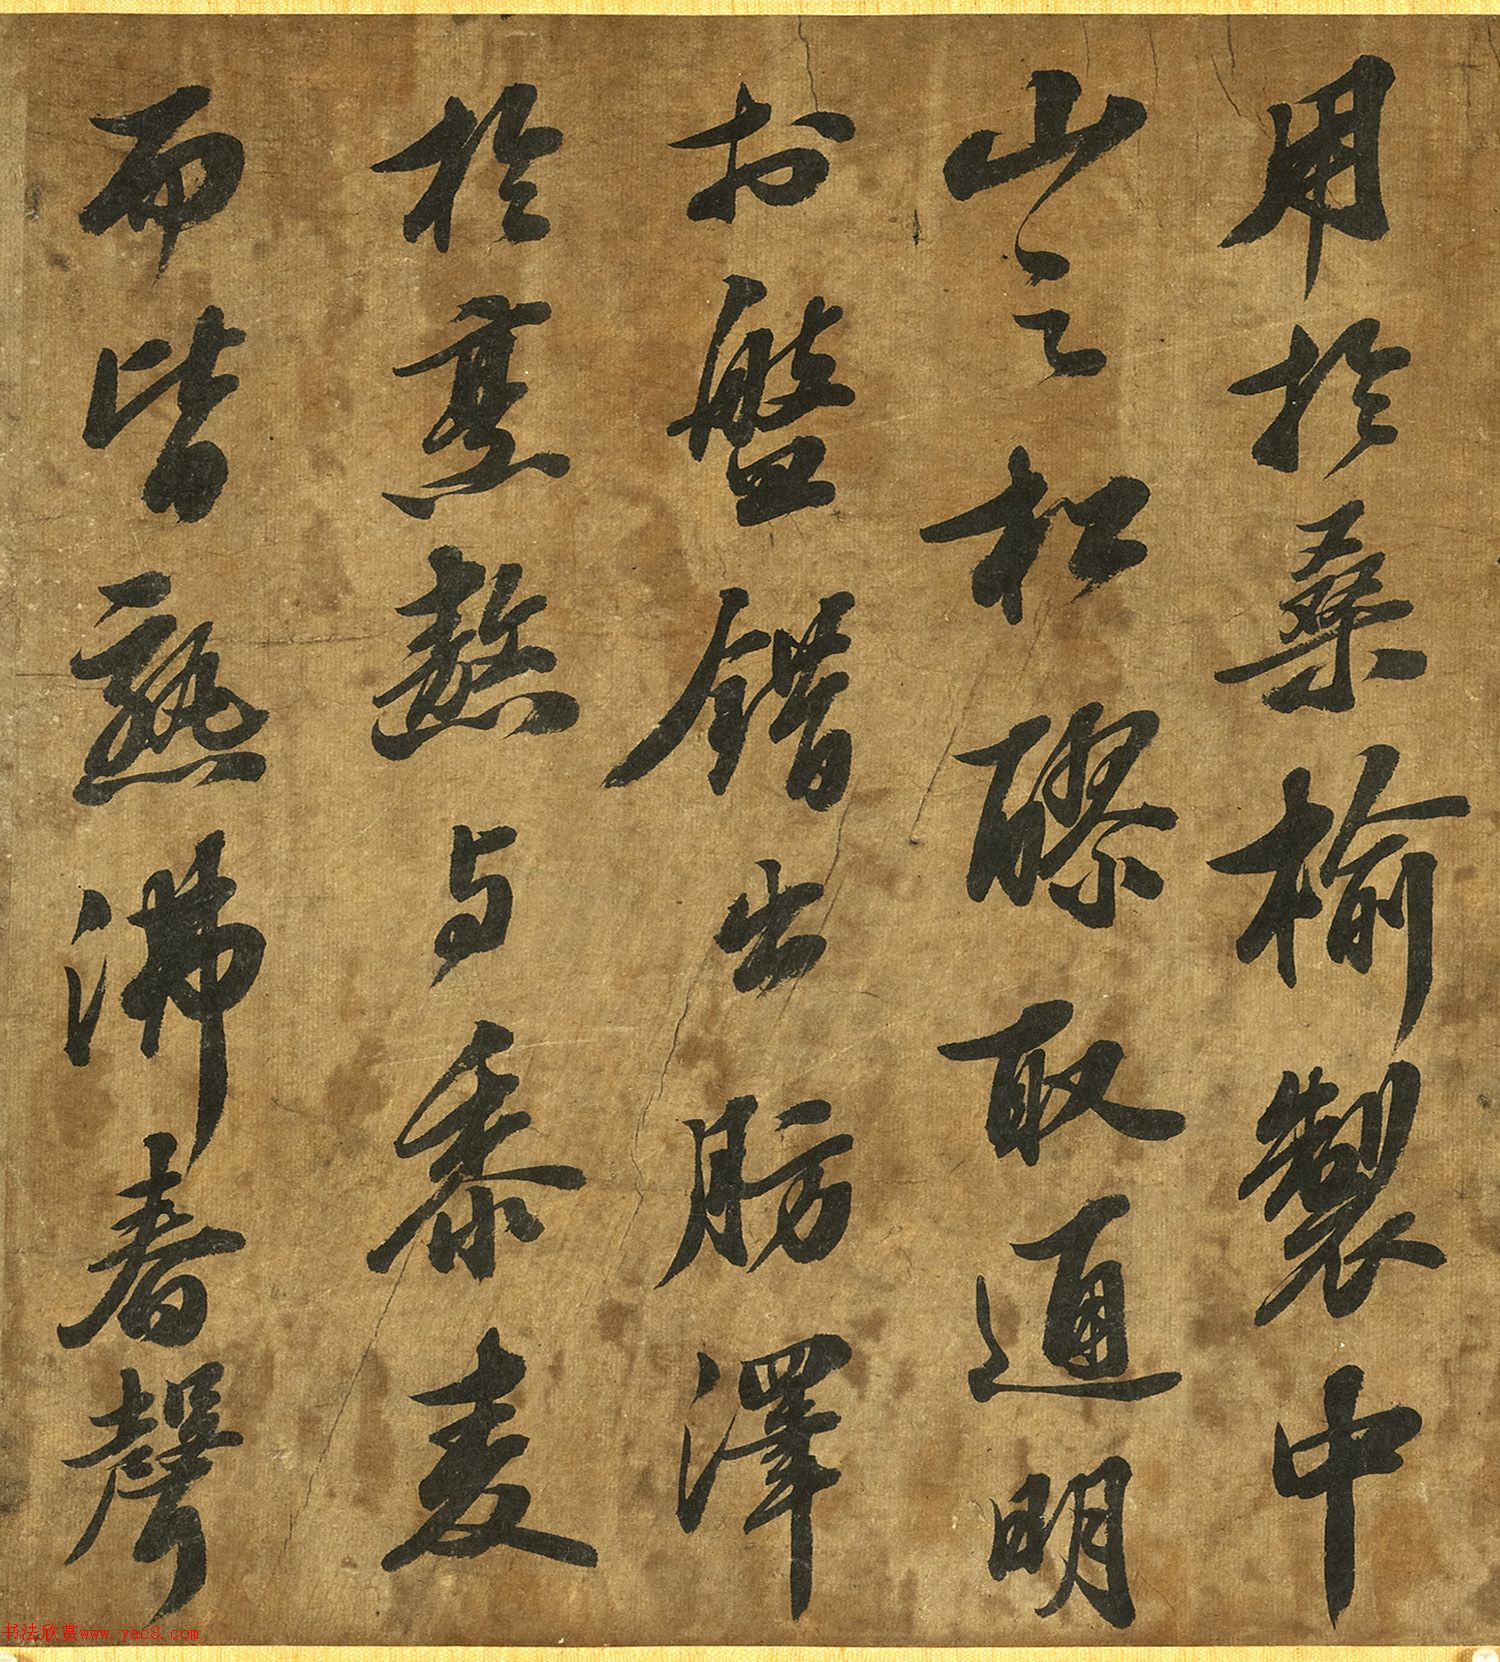 用於桑榆製中
山之松醪取通明
於盤錯出肪澤
於烹熬與黍麥
而皆熟沸舂聲
书法欣赏www.yac8.com